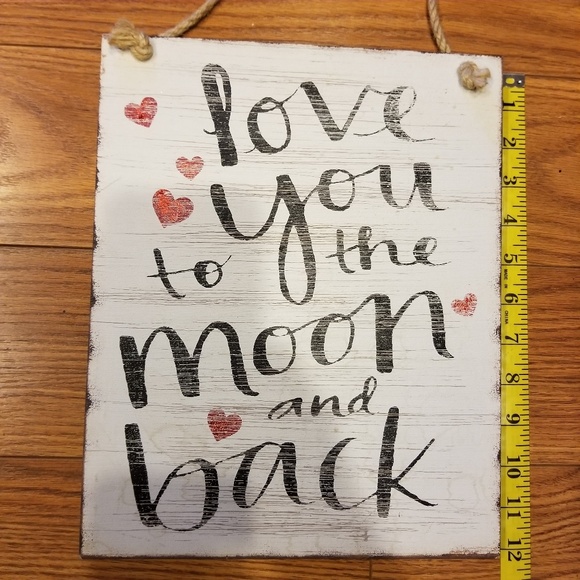 love
you
to the
moon
and
back
1
2
3
4
5
6
7
8
9
10
11
12